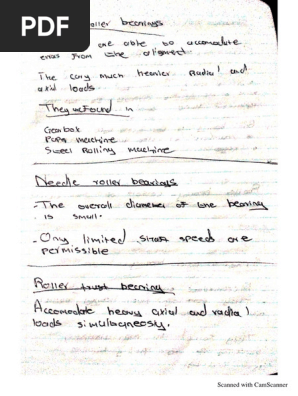 PDF
roller bearings
are able to accomodate
from the alignment
The cary much heavier Radial and
axial loads
They are Found in
Gearbox
Paper machine
Steel Rolling machine
Needle roller bearings
-The overall diameter of the bearing
is small.
-Ony limited shaft speeds are
permissible
Roller trust bearning
Accomodate heavy axial and radial
loads simultaneosy.
Scanned with CamScanner